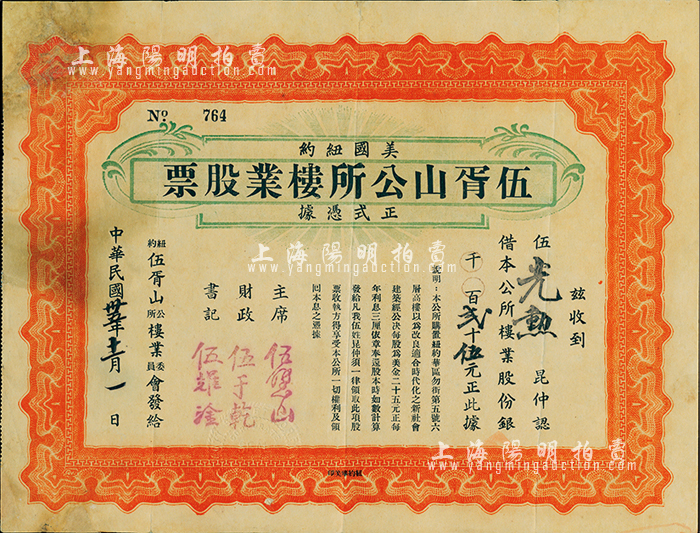 上海陽明拍賣
www.yangmingauction.com
No 764
美國紐約
伍胥山公所樓業股票
正式憑據
茲收到
伍光勲 昆仲認
借本公所樓業股份銀
千 百弍十伍元正此據
說明：本公所購置紐約華區勿街第五號六
層高樓以為改良適合時代化之新社會
建築經公決每股為美金二十五元正每
年利息三厘俟章奉還股本時如數計算
發給凡我伍姓昆仲須一律領取此項股
票收執方得享受本公所一切權利及領
回本息之憑據
主席 伍 山
財政 伍于乾
書記 伍
紐約伍胥山公所樓業委員會發給
中華民國卅五年十一月一日
上海陽明拍賣
www.yangmingauction.com
上海陽明拍賣
www.yangmingauction.com